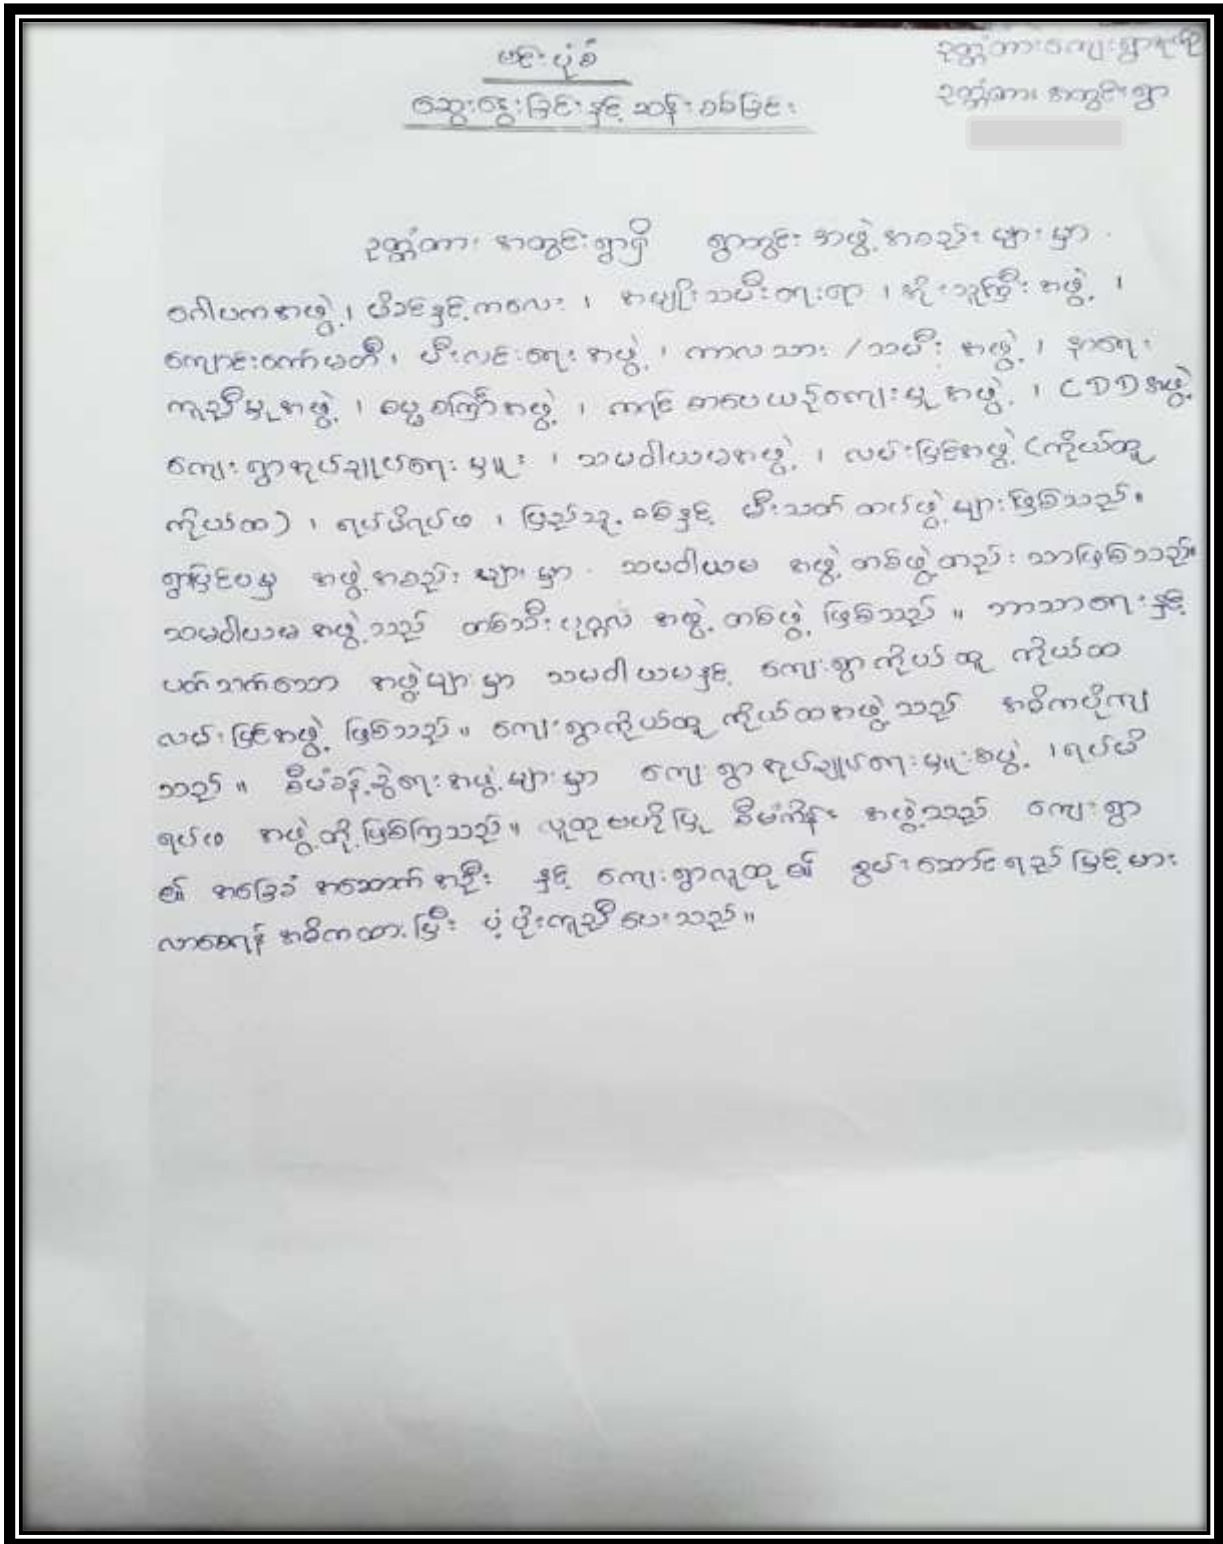 ဗင်းပုံစံ
ဥတ္တံတားကျေးရွာအုပ်စု
ဆွေးနွေးခြင်းနှင့် ဆန်းစစ်ခြင်း
ဥတ္တံတား အတွင်းရွာ
ဥတ္တံတား အတွင်းရွာရှိ ရွာတွင်း အဖွဲ့အစည်းများမှာ
ဂေါပကအဖွဲ့၊ မိခင်နှင့်ကလေး၊ အမျိုးသမီးရေးရာ၊ အိုးသူကြီးအဖွဲ့၊
ကျောင်းကော်မတီ၊ မီးလင်းရေးအဖွဲ့၊ ကာလသား/သမီး အဖွဲ့၊ နာရေး
ကူညီမှုအဖွဲ့၊ ဓမ္မစကြာအဖွဲ့၊ ကရင်စာပေယဉ်ကျေးမှုအဖွဲ့၊ CDDအဖွဲ့
ကျေးရွာအုပ်ချုပ်ရေးမှူး၊ သမဝါယမအဖွဲ့၊ လမ်းပြင်အဖွဲ့ (ကိုယ်ထူ
ကိုယ်ထ)၊ ရပ်မိရပ်ဖ၊ ပြည်သူ့စစ်နှင့် မီးသတ် တပ်ဖွဲ့များဖြစ်သည်။
ရွာပြင်ပမှ အဖွဲ့အစည်းများမှာ သမဝါယမ အဖွဲ့တစ်ဖွဲ့တည်းသာဖြစ်သည်။
သမဝါယမအဖွဲ့သည် တစ်သီးပုဂ္ဂလ အဖွဲ့တစ်ဖွဲ့ဖြစ်သည်။ ဘာသာရေးနှင့်
ပတ်သက်သော အဖွဲ့များမှာ သမဝါယမနှင့် ကျေးရွာကိုယ်ထူ ကိုယ်ထ
လမ်းပြင်အဖွဲ့ဖြစ်သည်။ ကျေးရွာကိုယ်ထူ ကိုယ်ထအဖွဲ့သည် အဓိကပိုကျ
သည်။ စီမံခန့်ခွဲရေးအဖွဲ့များမှာ ကျေးရွာအုပ်ချုပ်ရေးမှူးအဖွဲ့၊ ရပ်မိ
ရပ်ဖ အဖွဲ့တို့ဖြစ်ကြသည်။ လူထုဗဟိုပြု စီမံကိန်းအဖွဲ့သည် ကျေးရွာ
၏ အခြေခံ အဆောက်အဦး နှင့် ကျေးရွာလူထု၏ စွမ်းဆောင်ရည်မြင့်မား
လာစေရန် အဓိကထားပြီး ပံ့ပိုးကူညီပေးသည်။